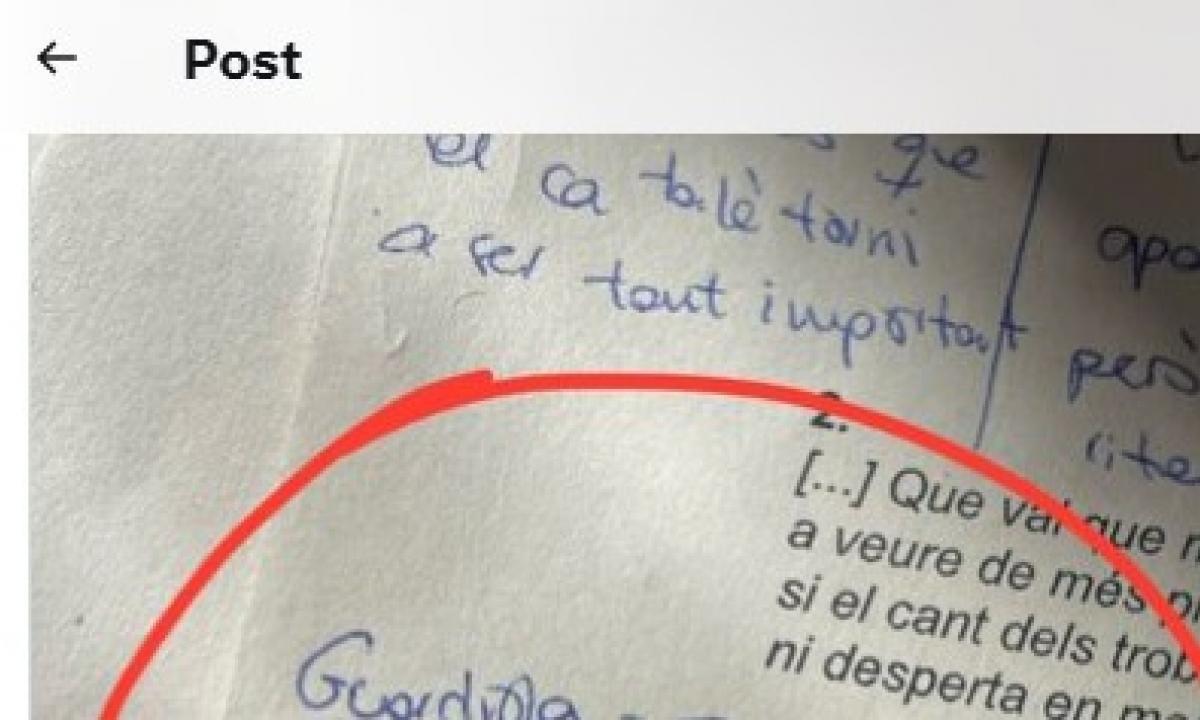 Post
el que
ca talè torni
a ser tant important
però
2.
[...] Que val que
a veure de més
si el cant dels
ni desperta en
Guardiola